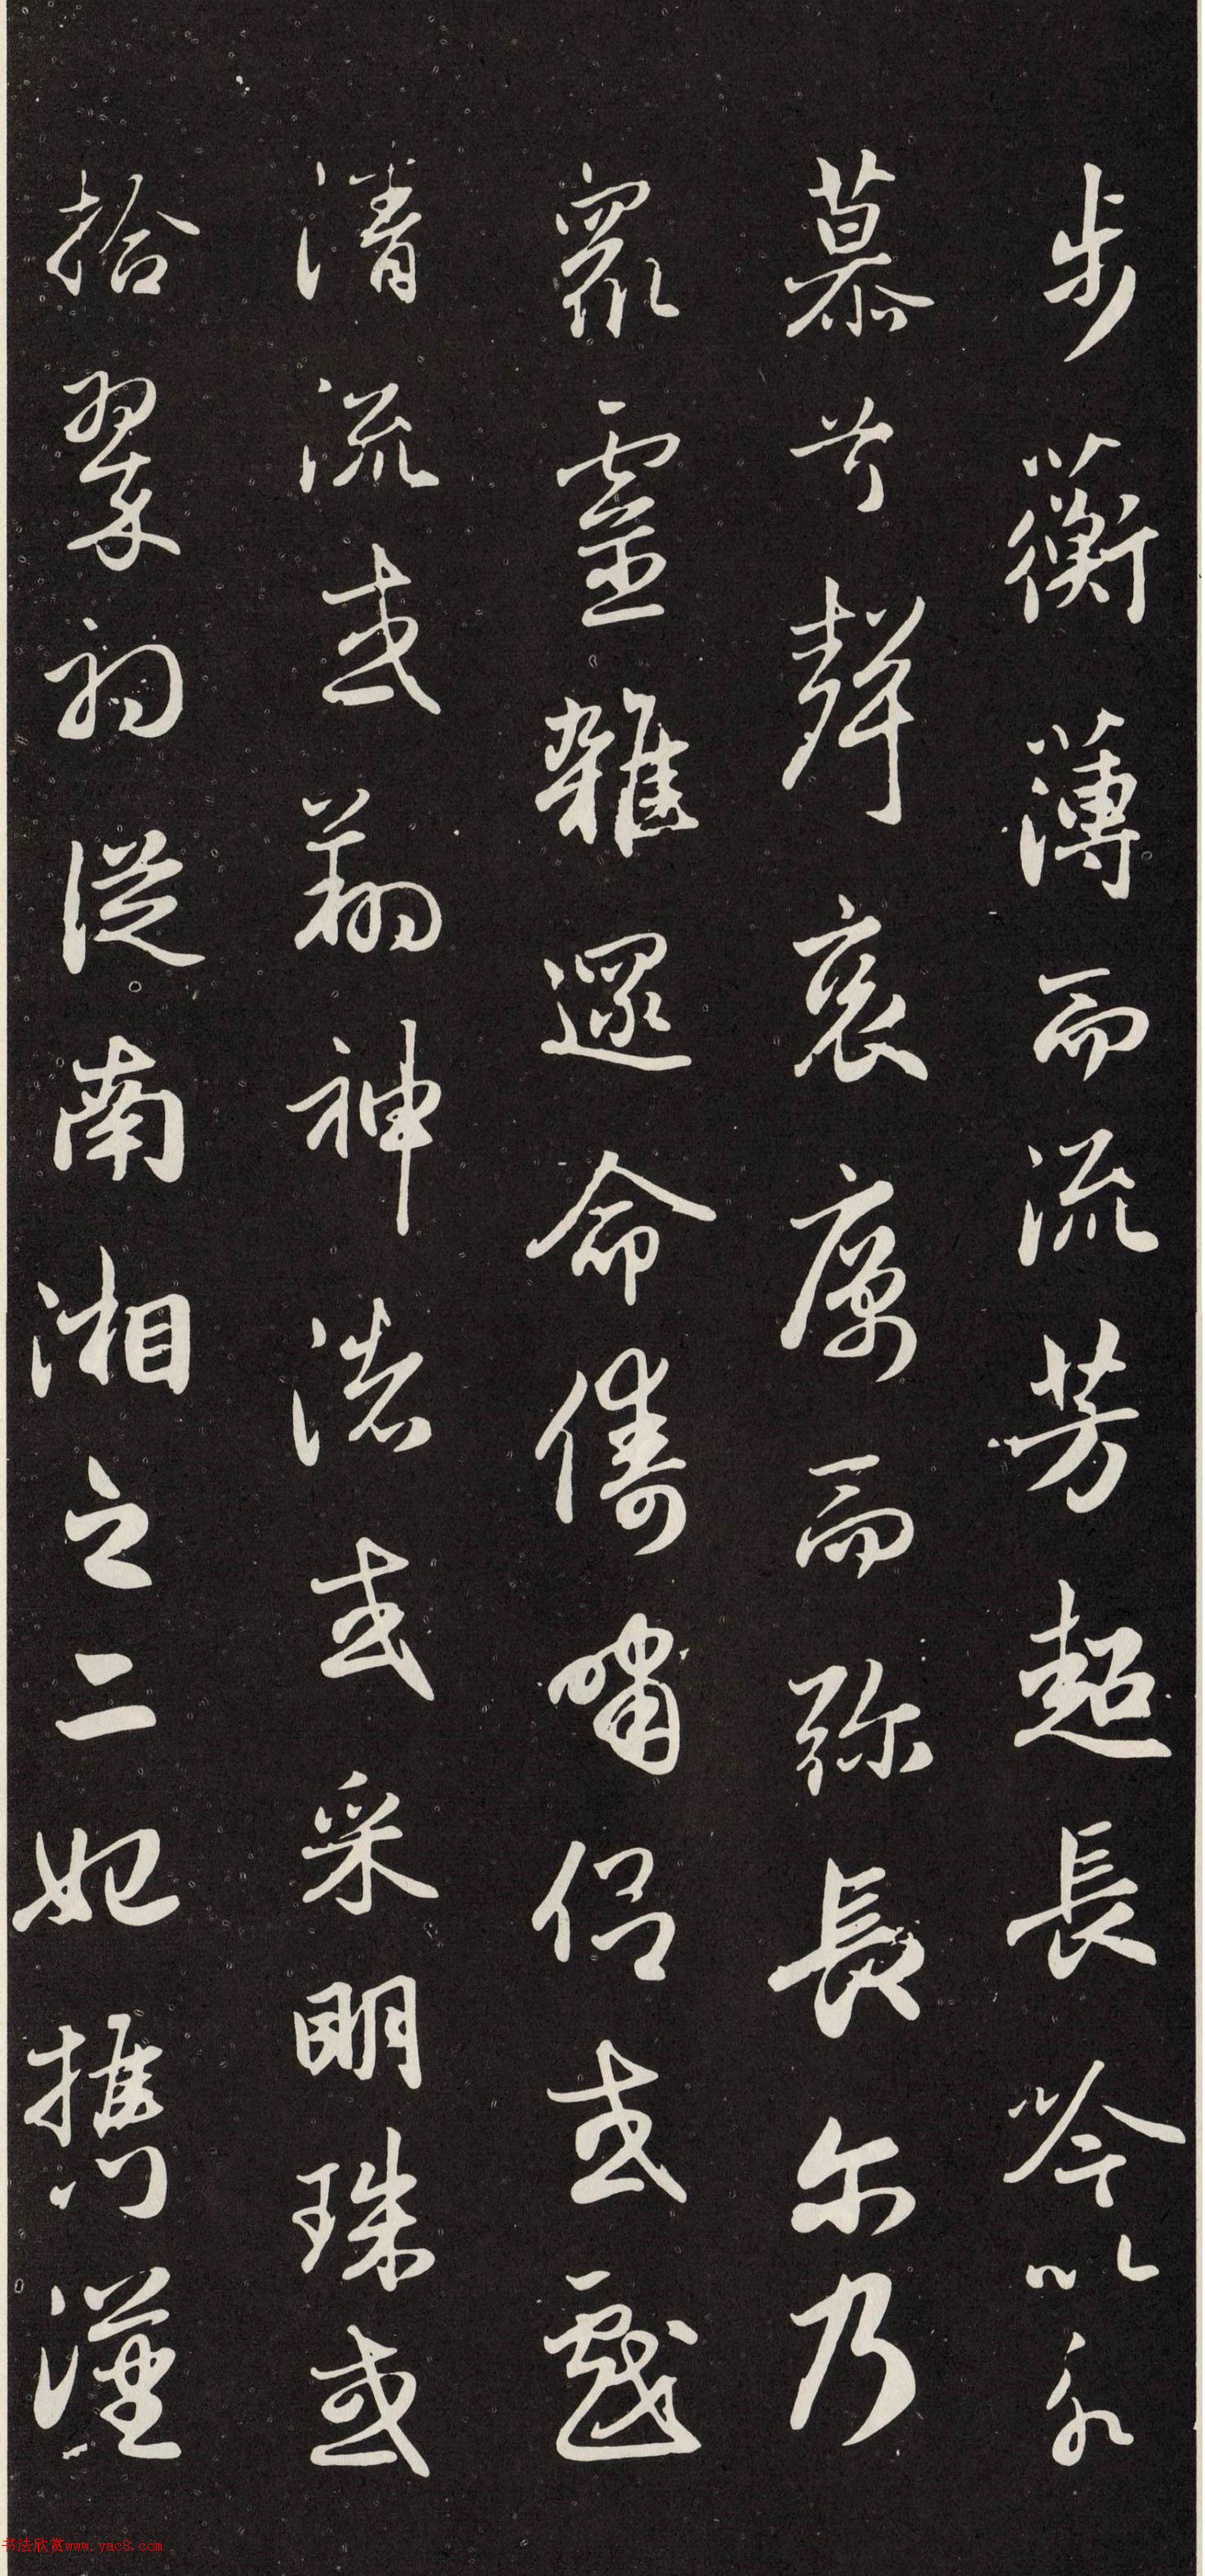 步蘅薄而流芳超長吟以永
慕兮聲哀厲而弥長尔乃
眾靈雜遝命儔嘯侶或戲
清流或翔神渚或采明珠或
拾翠羽從南湘之二妃攜漢
书法欣赏www.yac8.com